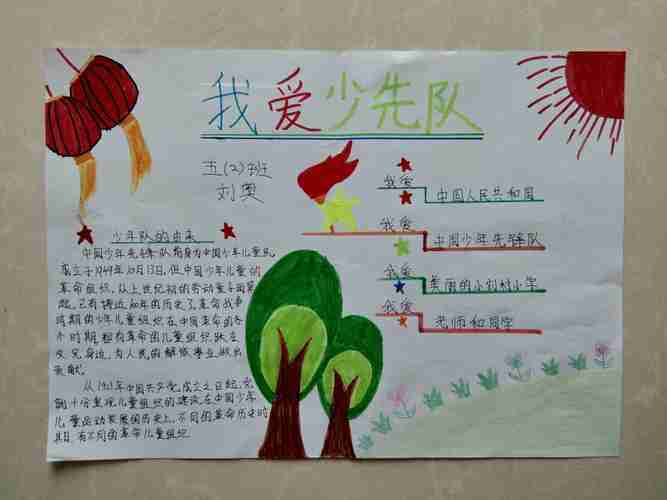 我爱少先队
五(2)班
刘奥
我爱
中国人民共和国
我爱
中国少年先锋队
我爱
美丽的小刘村小学
我爱
老师和同学
少年队的由来
中国少年先锋队前身为中国少年儿童队
成立于1949年10月13日,但中国少年儿童的
革命组织,从上世纪初的劳动童子团算
起,已有接近 年的历史了革命战争
时期的少年儿童组织在中国革命的各
个时期,都有革命的儿童组织跃在
身边,为人民的解放事业,做出
贡献。
从1921年中国共产党成立之日起,党
就十分重视儿童组织的建设,在中国少年
儿童运动发展的历史上,不同的革命历史时
期,有不同的革命儿童组织